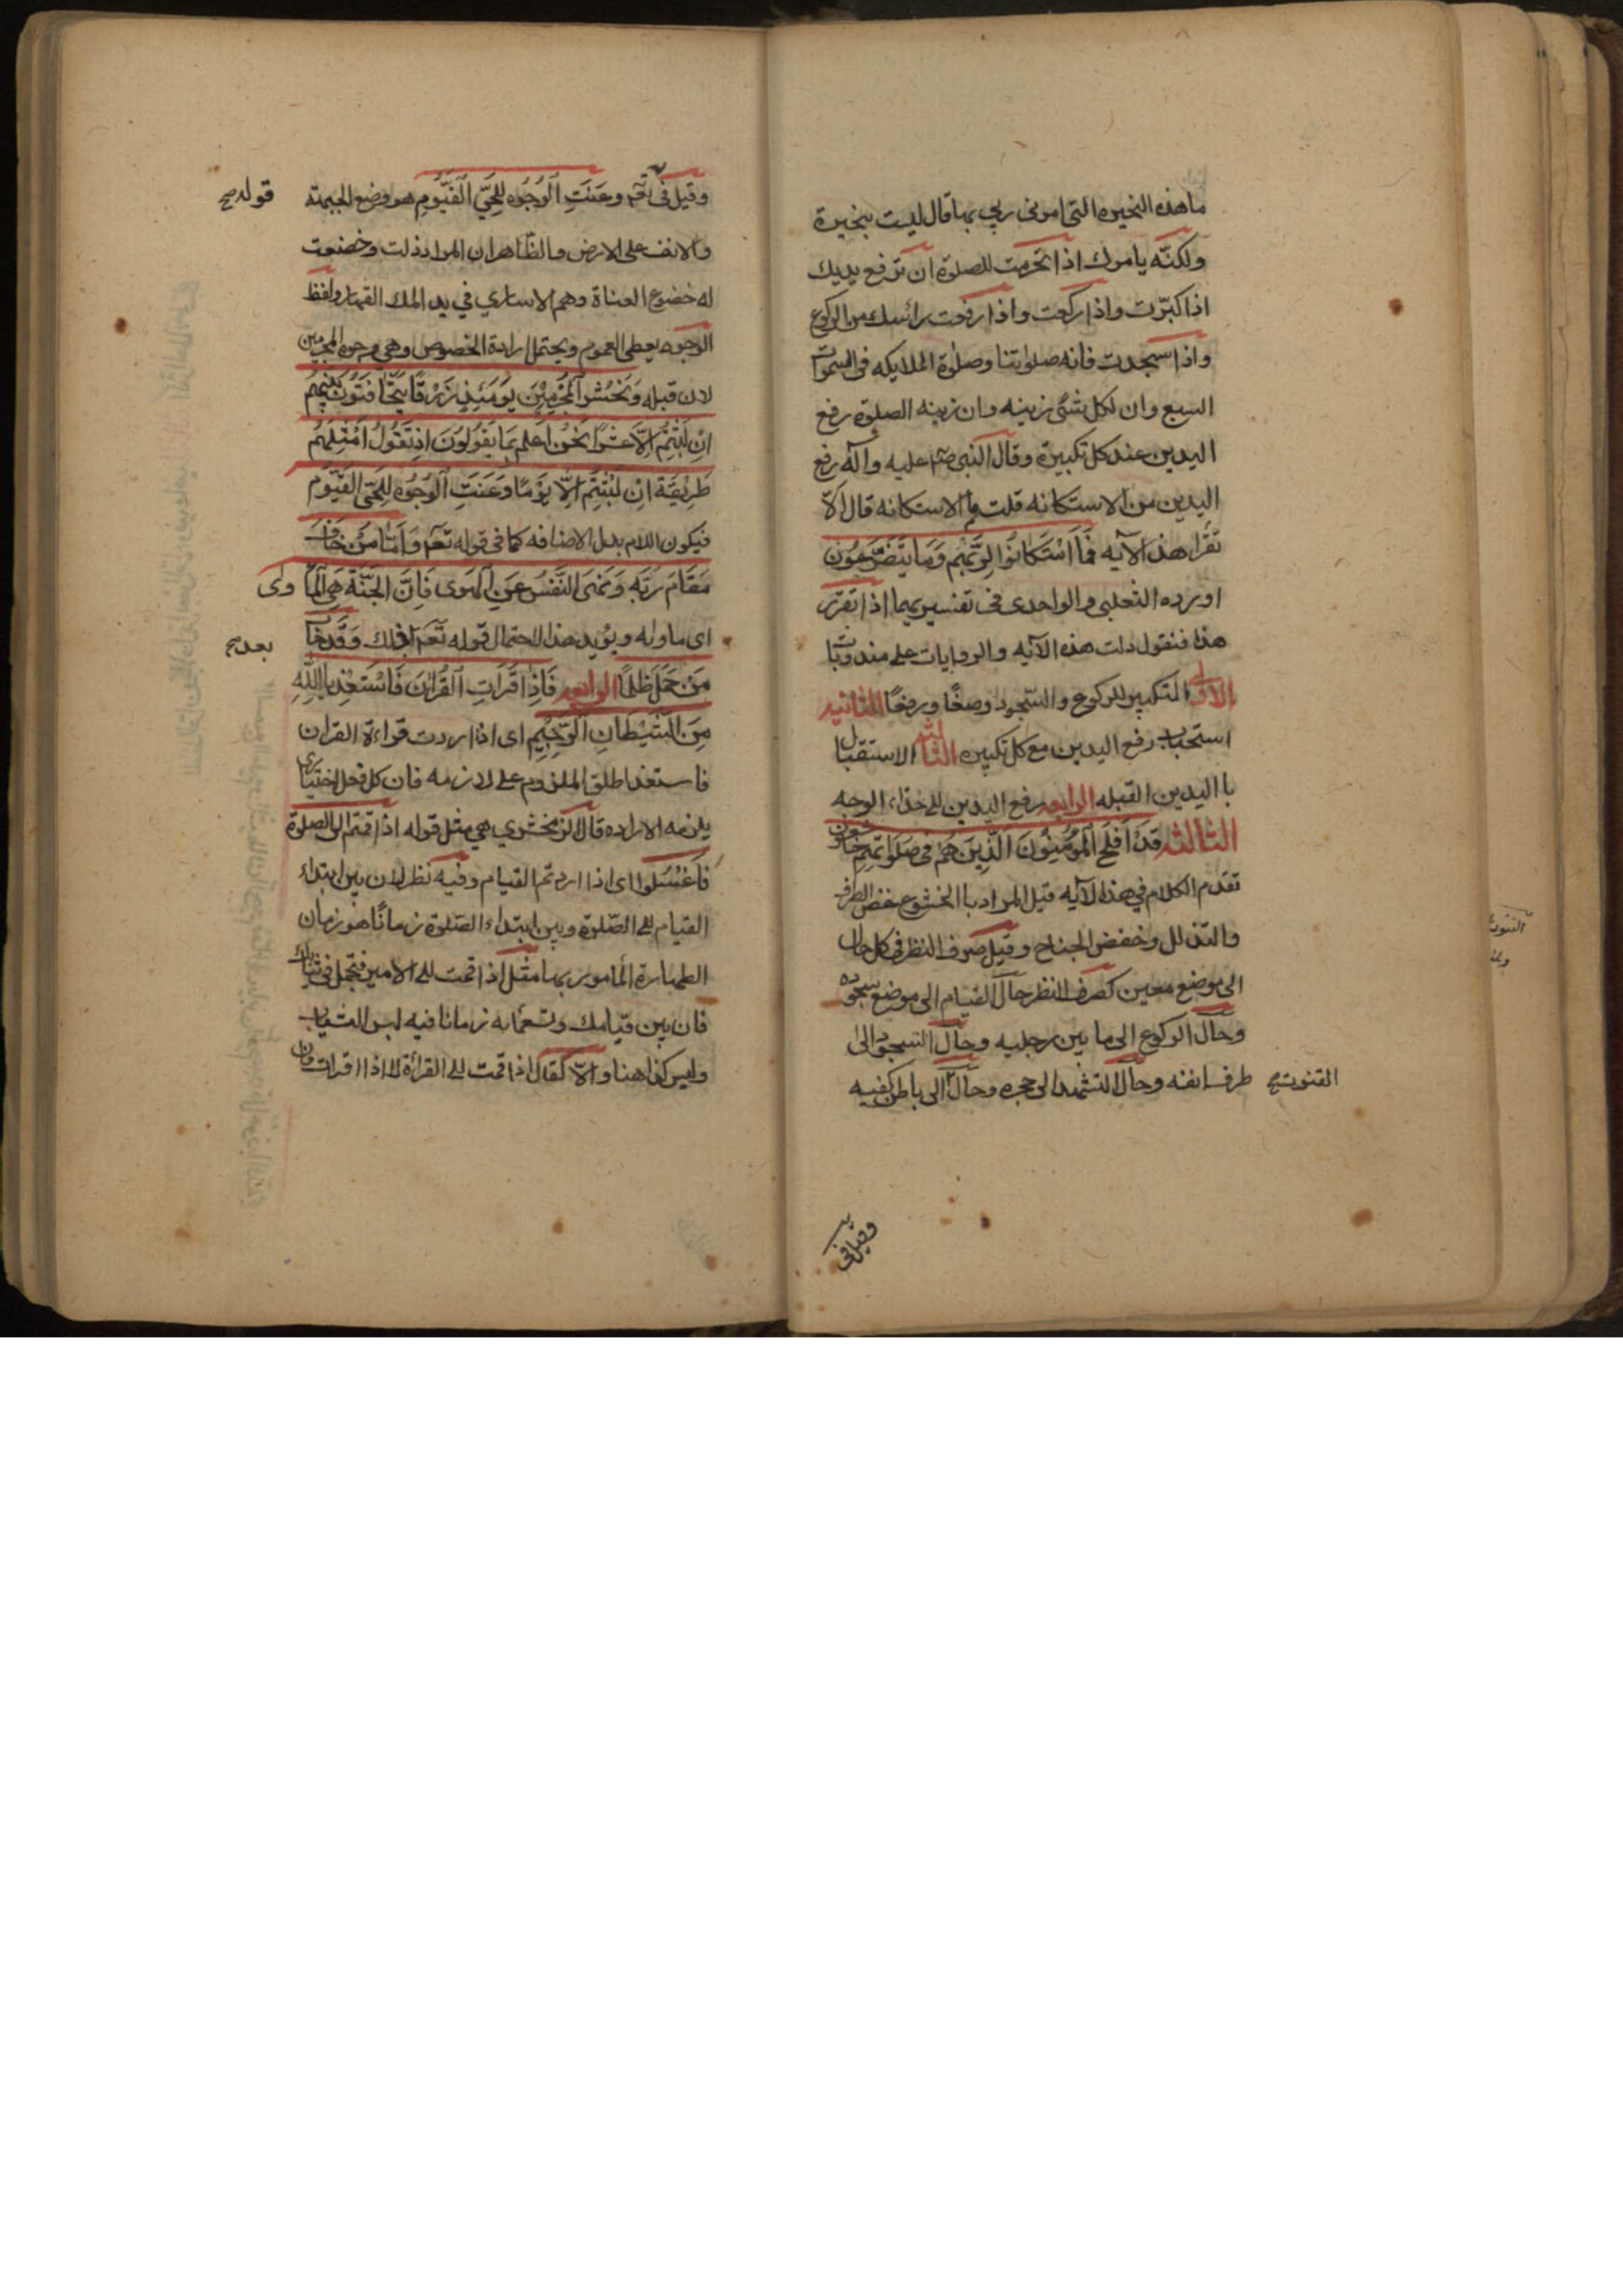 ما هذه النحيره التى امرنى ربى بها قال ليست بنحيرة
ولكنّه يامرك اذا تحرمت للصلوة ان ترفع يديك
اذا كبّرت واذا ركعت واذا رفعت رائسك من الركوع
واذا سجدت فانه صلوتنا وصلوة الملايكه فى السموات
السبع وان لكل شئ زينه وان زينه الصلوة رفع
اليدين عند كل تكبيرة وقال النبى صم عليه وآله رفع
اليدين من الاستكانه قلت وما الاستكانه قال الا
تقرا هذه الآيه فَمَا اسْتَكانُوا لِرَبِّهِم وَمَا يَتَضَرَّعُون
اورده الثعلبى والواحدى فى تفسيريهما اذا تقرّر
هذا فنقول دلت هذه الآيه والروايات على مندوبات
الاولى التكبير للركوع والسّجود وضعًا ورفعًا الثانيه
استحباب رفع اليدين مع كل تكبيره الثالثه الاستقبال
با اليدين القبله الرابعه رفع اليدين الى حذاء الوجه
الثالثه قَدْ اَفْلَحَ المُؤمِنُونَ الَّذِينَ هُمْ فى صَلَواتهِمِ خاشعون
تقدم الكلام فى هذه الآيه قيل المراد با الخشوع غض الطرف
والتذلل وخفض الجناح وقيل صرف النظر فى كل حال
الى موضع معين كصرف النظر حال القيام الى موضع سجوده
وحال الركوع الى ما بين رجليه وحال السجود الى
طرف انفه وحال التشهد الى حجره وحال الى باطن كفيه
القنوت صح
وقيل فى
وقيل فى تعم وعَنَتِ الْوُجُوه لِلحَىِّ الْقَيّوُمِ هو وضع الجبهة
قوله صح
والانف على الارض والظّاهر ان المراد ذلت وخضعت
له خضوع العناة وهم الاسارى في يد الملك القهار ولفظ
الوجوه يعطى العموم ويحتمل ارادة الخصوص وهى وجوه المجرمين
لان قبله وَنَحْشُر الْمُجْرِمِيْنَ يَوْمَئِذٍ زُرْقًا يَتَخافَتُونَ بَيْنَهُم
اِنْ لَبِثْتُم اِلاَّ عَشْرًا نَحْنُ اَعلم بِمَا يَقُولُونَ اِذ يَقُولُ اَمْثَلُهُم
طَرِيقَة اِنْ لَبِثْتِم اِلاّ يَوْمًا وَعَنَتِ الْوُجُوُه لِلحَىِّ القَيّوُم
فيكون اللام بدل الاضافه كما فى قوله تعم وَاَمّا مَنْ خَافَ
مَقَامَ رَبِّهِ وَنَهَى النَّفْسَ عَنِ الْهَوى فَاِنَّ الجَنَّةَ هِىَ الْمَأوٰى
اى ماواه ويؤيد هذا الاحتمال قوله تعم ذلك وَقَدْ خَابَ
بعد صح
مَنْ حَمَلَ ظُلْمًا الرابعه فَاِذَا قَرَاتِ الْقُرْانَ فَاسْتَعِذْ بِاللهِ
مِنَ الشَّيْطَانِ الرَّجِيْمِ اى اذا اردت قراءة القران
فاستعذ اطلق الملزوم على لازمه فان كل فعل اختيارى
يلزمه الاراده قال الزمخشري هى مثل قوله اذا قمتم الى الصلوة
فَاغْسُلوا اى اذا اردتم القيام وفيه نظر لان بين ابتداء
القيام الى الصّلوة وبين ابتداء الصّلوة زمانًا هو زمان
الطهارة المامور بها مثل اذا قمت الى الامير فتجمل فى ثيابك
فان بين قيامك و زمانا فيه لبس الثياب
وليس كذا هنا والاّ لقال اذا قمت الى القرأة لا اذا قرات